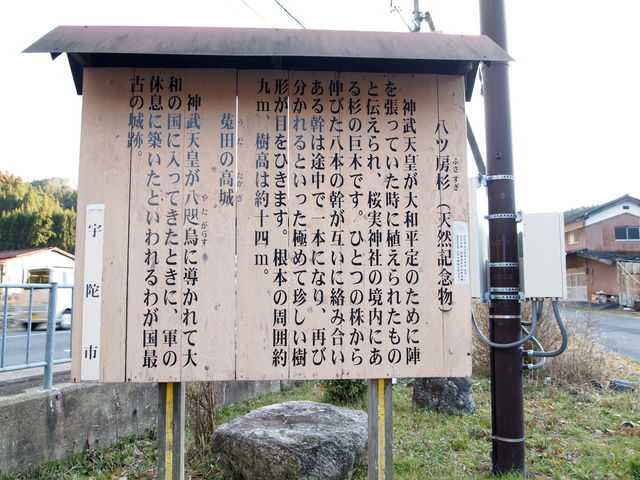 八ツ房杉(天然記念物)
ふさすぎ
神武天皇が大和平定のために陣
を張っていた時に植えられたもの
と伝えられ、桜実神社の境内にあ
る杉の巨木です。ひとつの株から
伸びた八本の幹が互いに絡み合い
ある幹は途中で一本になり、再び
分かれるといった極めて珍しい樹
形が目をひきます。根本の周囲約
九m、樹高は約十四m。
菟田の高城
うだ たかぎ
神武天皇が八咫烏に導かれて大
やたがらす
和の国に入ってきたときに、軍の
休息に築いたといわれるわが国最
古の城跡。
宇陀市